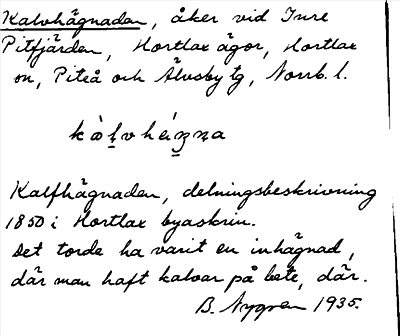 Kalvhägnaden, åker vid Inre
Pitfjärden, Hortlax ägor, Hortlax
sn, Piteå och Älvsby tg, Norrb. l.
Kalfhägnaden, delningsbeskrivning
1850 i Hortlax byaskrin.
Det torde ha varit en inhägnad,
där man haft kalvar på bete, där.
B. Nygren 1935.